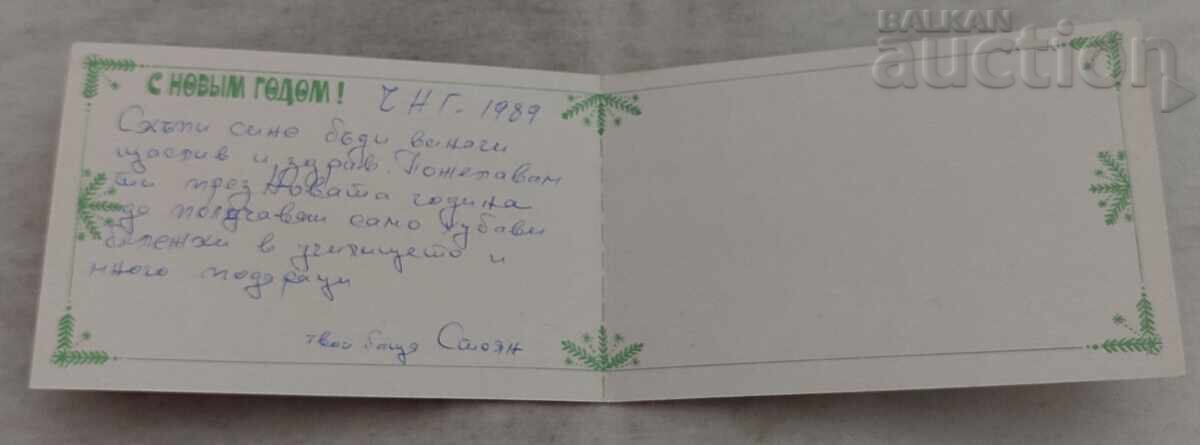 BALKAN
auction
С НОВЫМ ГОДОМ!
ЧНГ. 1989
Скъпи сине бъди винаги
щастлив и здрав. Пожелавам
ти през Новата година
да получаваш само хубави
бележки в училището и
много подаръци
твой баща Стоян